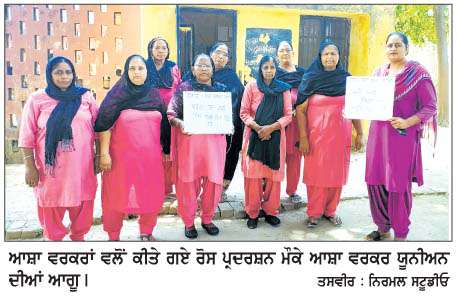 ਆਸ਼ਾ ਵਰਕਰਾਂ ਵਲੋਂ ਕੀਤੇ ਗਏ ਰੋਸ ਪ੍ਰਦਰਸ਼ਨ ਮੌਕੇ ਆਸ਼ਾ ਵਰਕਰ ਯੂਨੀਅਨ
ਦੀਆਂ ਆਗੂ। ਤਸਵੀਰ : ਨਿਰਮਲ ਸਟੂਡੀਓ